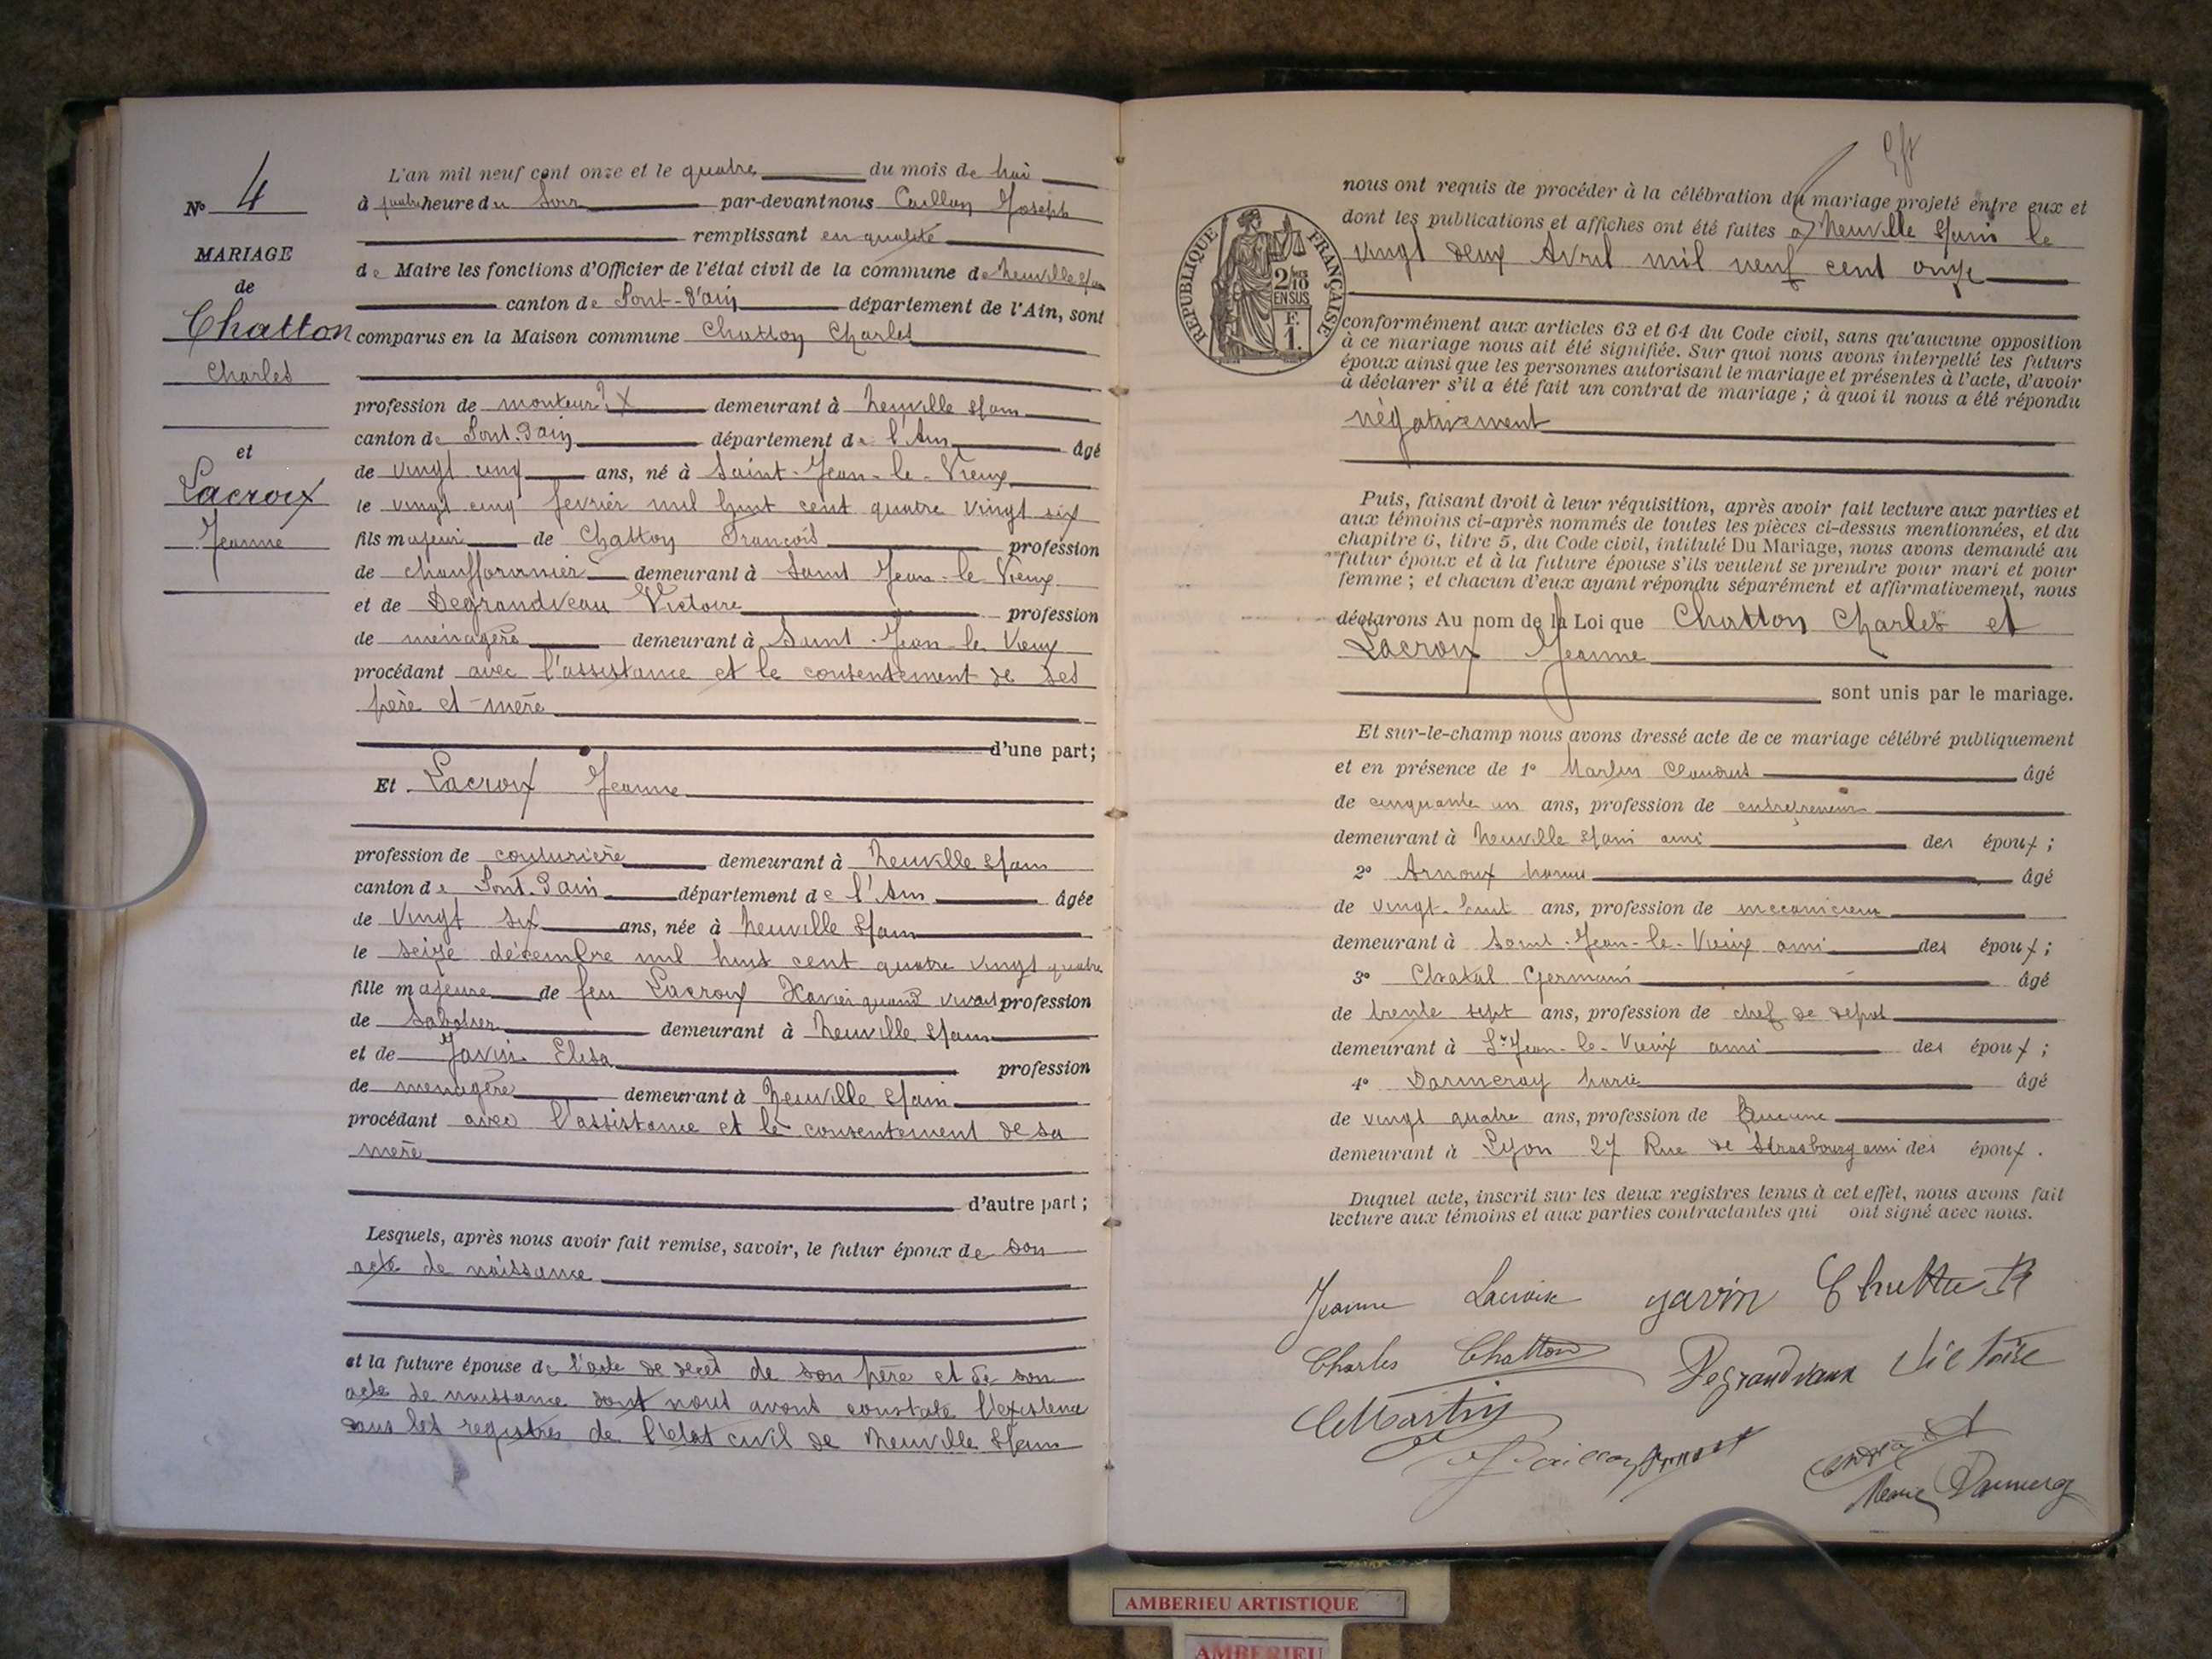 L'an mil neuf cent onze et le quatre du mois de Mai
N° 4
à quatre heure du Soir par-devant nous Caillon Joseph
remplissant en qualité
MARIAGE
de Maire les fonctions d'Officier de l'état civil de la commune de Neuville s/ain
de
canton de Pont-d'ain département de l'Ain, sont
Chatton
comparus en la Maison commune Chatton Charles
Charles
profession de monteur demeurant à Neuville s/ain
canton de Pont-d'ain département de l'Ain âgé
et
de vingt cinq ans, né à Saint-Jean-le-Vieux
Lacroix
le vingt cinq fevrier mil huit cent quatre vingt six
Jeanne
fils majeur de Chatton François profession
de chauffournier demeurant à Saint Jean-le Vieux
et de Degrandveau Victoire profession
de ménagère demeurant à Saint-Jean-le Vieux
procédant avec l'assistance et le consentement de ses
père et mère
d'une part;
Et Lacroix Jeanne
profession de couturière demeurant à Neuville s/ain
canton de Pont-d'ain département de l'Ain âgée
de vingt six ans, née à Neuville s/ain
le seize décembre mil huit cent quatre vingt quatre
fille majeure de feu Lacroix Xavier quand vivait profession
de Sabotier demeurant à Neuville s/ain
et de Javin Elisa profession
de menagère demeurant à Neuville s/ain
procédant avec l'assistance et le consentement de sa
mère
d'autre part;
Lesquels, après nous avoir fait remise, savoir, le futur époux de son
acte de naissance
et la future épouse de l'acte de décès de son père et de son
acte de naissance dont nous avons constaté l'existence
sur les registres de l'état civil de Neuville s/ain
nous ont requis de procéder à la célébration du mariage projeté entre eux et
dont les publications et affiches ont été faites à Neuville s/ain le
vingt deux Avril mil neuf cent onze
RÉPUBLIQUE FRANÇAISE
2/10 EN SUS
F. 1.
conformément aux articles 63 et 64 du Code civil, sans qu'aucune opposition
à ce mariage nous ait été signifiée. Sur quoi nous avons interpellé les futurs
époux ainsi que les personnes autorisant le mariage et présentes à l'acte, d'avoir
à déclarer s'il a été fait un contrat de mariage ; à quoi il nous a été répondu
négativement
Puis, faisant droit à leur réquisition, après avoir fait lecture aux parties et
aux témoins ci-après nommés de toutes les pièces ci-dessus mentionnées, et du
chapitre 6, titre 5, du Code civil, intitulé Du Mariage, nous avons demandé au
futur époux et à la future épouse s'ils veulent se prendre pour mari et pour
femme ; et chacun d'eux ayant répondu séparément et affirmativement, nous
déclarons Au nom de la Loi que Chatton Charles et
Lacroix Jeanne
sont unis par le mariage.
Et sur-le-champ nous avons dressé acte de ce mariage célébré publiquement
et en présence de 1° Martin Claudius âgé
de cinquante un ans, profession de entrepreneur
demeurant à Neuville s/ain ami des époux ;
2° Arnoux âgé
de vingt-huit ans, profession de mecanicien
demeurant à Saint-Jean-le-Vieux ami des époux ;
3° Chatal Germain âgé
de trente sept ans, profession de chef de depot
demeurant à St-Jean-le-Vieux ami des époux ;
4° Darmeray Marie âgé
de vingt quatre ans, profession de Aucune
demeurant à Lyon 27 Rue de Strasbourg ami des époux.
Duquel acte, inscrit sur les deux registres tenus à cet effet, nous avons fait
lecture aux témoins et aux parties contractantes qui ont signé avec nous.
Jeanne Lacroix Javin
Charles Chatton Degrandvaux Victoire
C Martin
Marie
AMBERIEU ARTISTIQUE
AMBERIEU